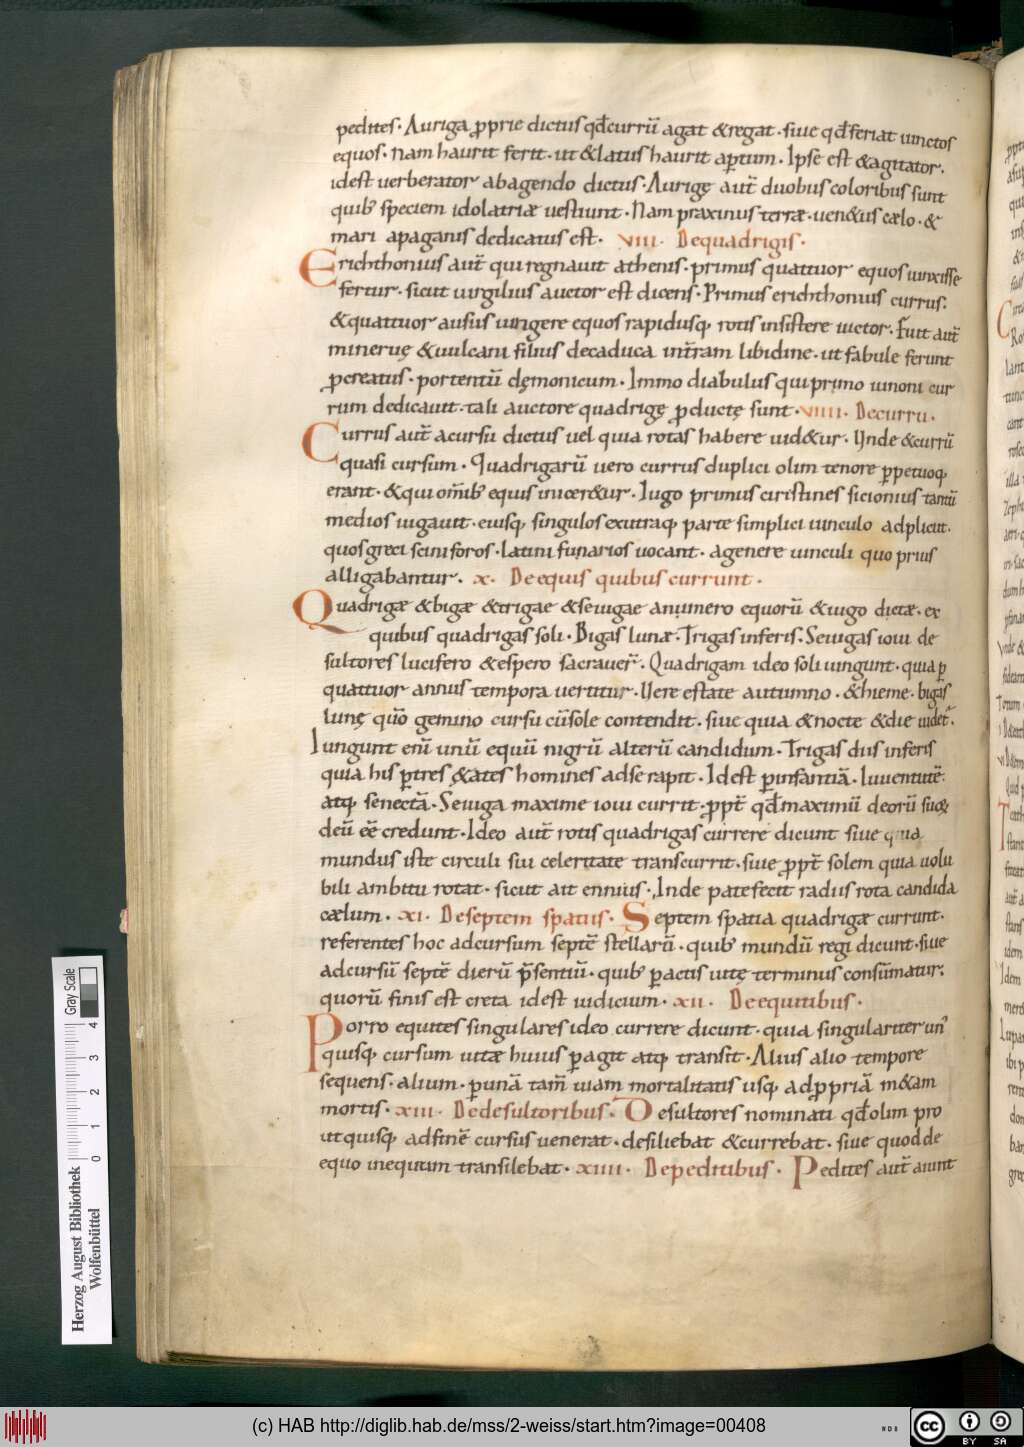 pedites. Auriga ꝓprie dictus qđcurrū agat &regat. siue qđferiat iunctos
equos. Nam haurit ferit. ut &latus haurit aꝑtum. Ipse est &agitator.
idest uerberator abagendo dictus. Aurigę aut̄ duobus coloribus sunt
quib; speciem idolatriæ uestiunt. Nam praxinus terræ. uen&us cælo. &
mari apaganis dedicatus est. VIII. Dequadrigis.
Erichthonius aut̄ qui regnauit athenis. primus quattuor equos iunxisse
fertur. sicut uirgilius auctor est dicens. Primus erichthonius currus.
&quattuor ausus iungere equos rapidusq; rotis insistere uictor. Fuit aut̄
mineruę &uulcani filius decaduca int̄ram libidine. ut fabule ferunt
ꝓcreatus. portentū dęmonicum. Immo diabulus qui primo iunoni cur
rum dedicauit. tali auctore quadrigę ꝓductę sunt. VIIII. Decurru.
Currus aut̄ acursu dictus uel quia rotas habere uid&ur. Unde &currū
quasi cursum. Quadrigarū uero currus duplici olim tenore ꝑpetuoq;
erant. &qui om̄ib; equis inicer&ur. Iugo primus ciristines sicionius tantū
medios iugauit. eiusq; singulos exutraq; parte simplici uinculo adplicuit.
quos greci seiniforos. latini funarios uocant. agenere uinculi quo prius
alligabantur. X. Deequis quibus currunt.
Quadrigæ &bigæ &trigae &seiugae anumero equorū &iugo dictæ. ex
quibus quadrigas soli. Bigas lunæ. Trigas inferis. Seiugas ioui de
sultores lucifero &espero sacrauer̄. Quadrigam ideo soli iungunt. quia ꝑ
quattuor annus tempora uertitur. Uere estate autumno. &hieme. bigas
lunę quō gemino cursu cūsole contendit. siue quia &nocte &die uidet̄.
Iungunt enī unū equū nigrū alterū candidum. Trigas diis inferis
quia his ꝑ tres &ates homines adse rapit. Idest ꝑinfantiā. Iuuentutē.
atq; senectā. Seiuga maxime ioui currit. ꝓpt̄ qđmaximū deorū suoꝝ
deū eē credunt. Ideo aut̄ rotis quadrigas currere dicunt siue quia
mundus iste circuli sui celeritate transcurrit. siue ꝓpt̄ solem quia uolu
bili ambitu rotat. sicut ait ennius. Inde patefecit radiis rota candida
cælum. XI. Deseptem spatiis. Septem spatia quadrigæ currunt.
referentes hoc adcursum septē stellarū. quib; mundū regi dicunt. siue
adcursū septē dierū p̄sentiū. quib; ꝑactis uitę terminus consūmatur.
quorū finis est creta idest iudicium. XII. Deequitibus.
Porro equites singulares ideo currere dicunt. quia singulariter un
quisq; cursum uitæ huius ꝑagit atq; transit. Alius alio tempore
sequens. alium. ꝑunā tam̄ uiam mortalitatis usq; adꝓpriā m&am
mortis. XIII. Dedesultoribus. Desultores nominati qđolim pro
utquisq; adfinē cursus uenerat. desiliebat &currebat. siue quodde
equo inequum transilebat. XIIII. Depeditibus. Pedites aut̄ aiunt
Herzog August Bibliothek
Wolfenbüttel
0 1 2 3 4
Gray Scale
(c) HAB http://diglib.hab.de/mss/2-weiss/start.htm?image=00408
WDB
cc BY SA